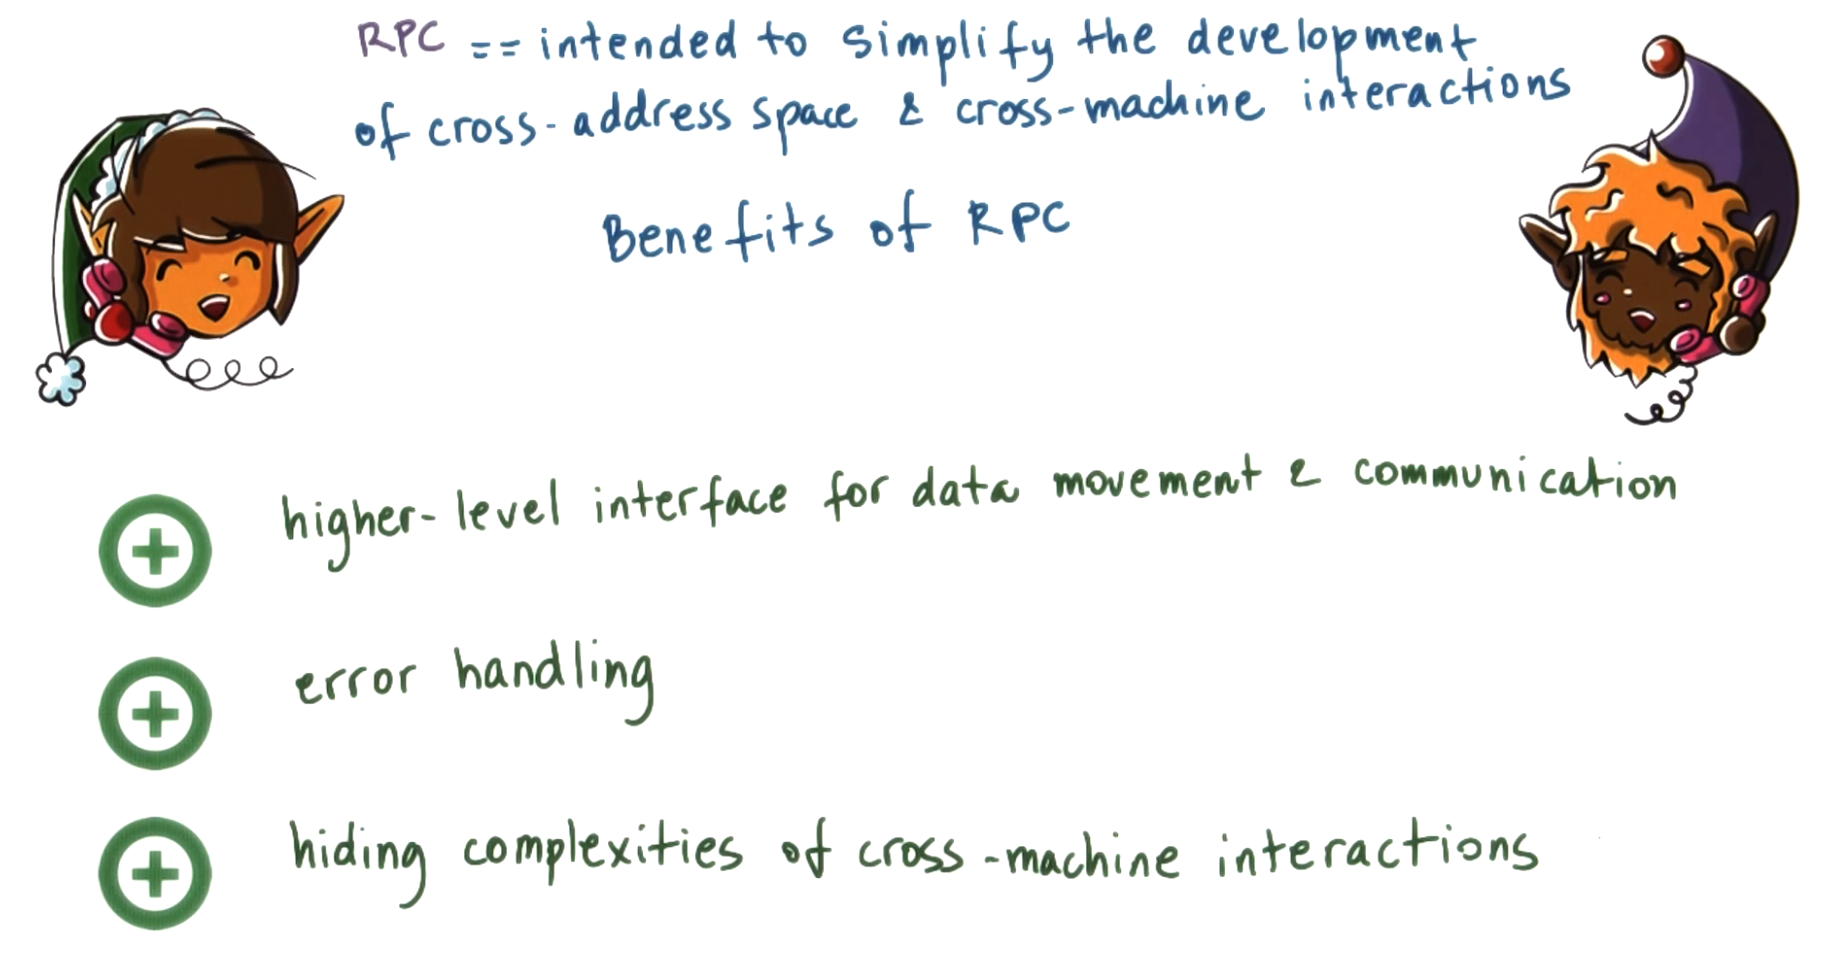 RPC == intended to simplify the development
of cross-address space & cross-machine interactions
Benefits of RPC
higher-level interface for data movement & communication
error handling
hiding complexities of cross-machine interactions